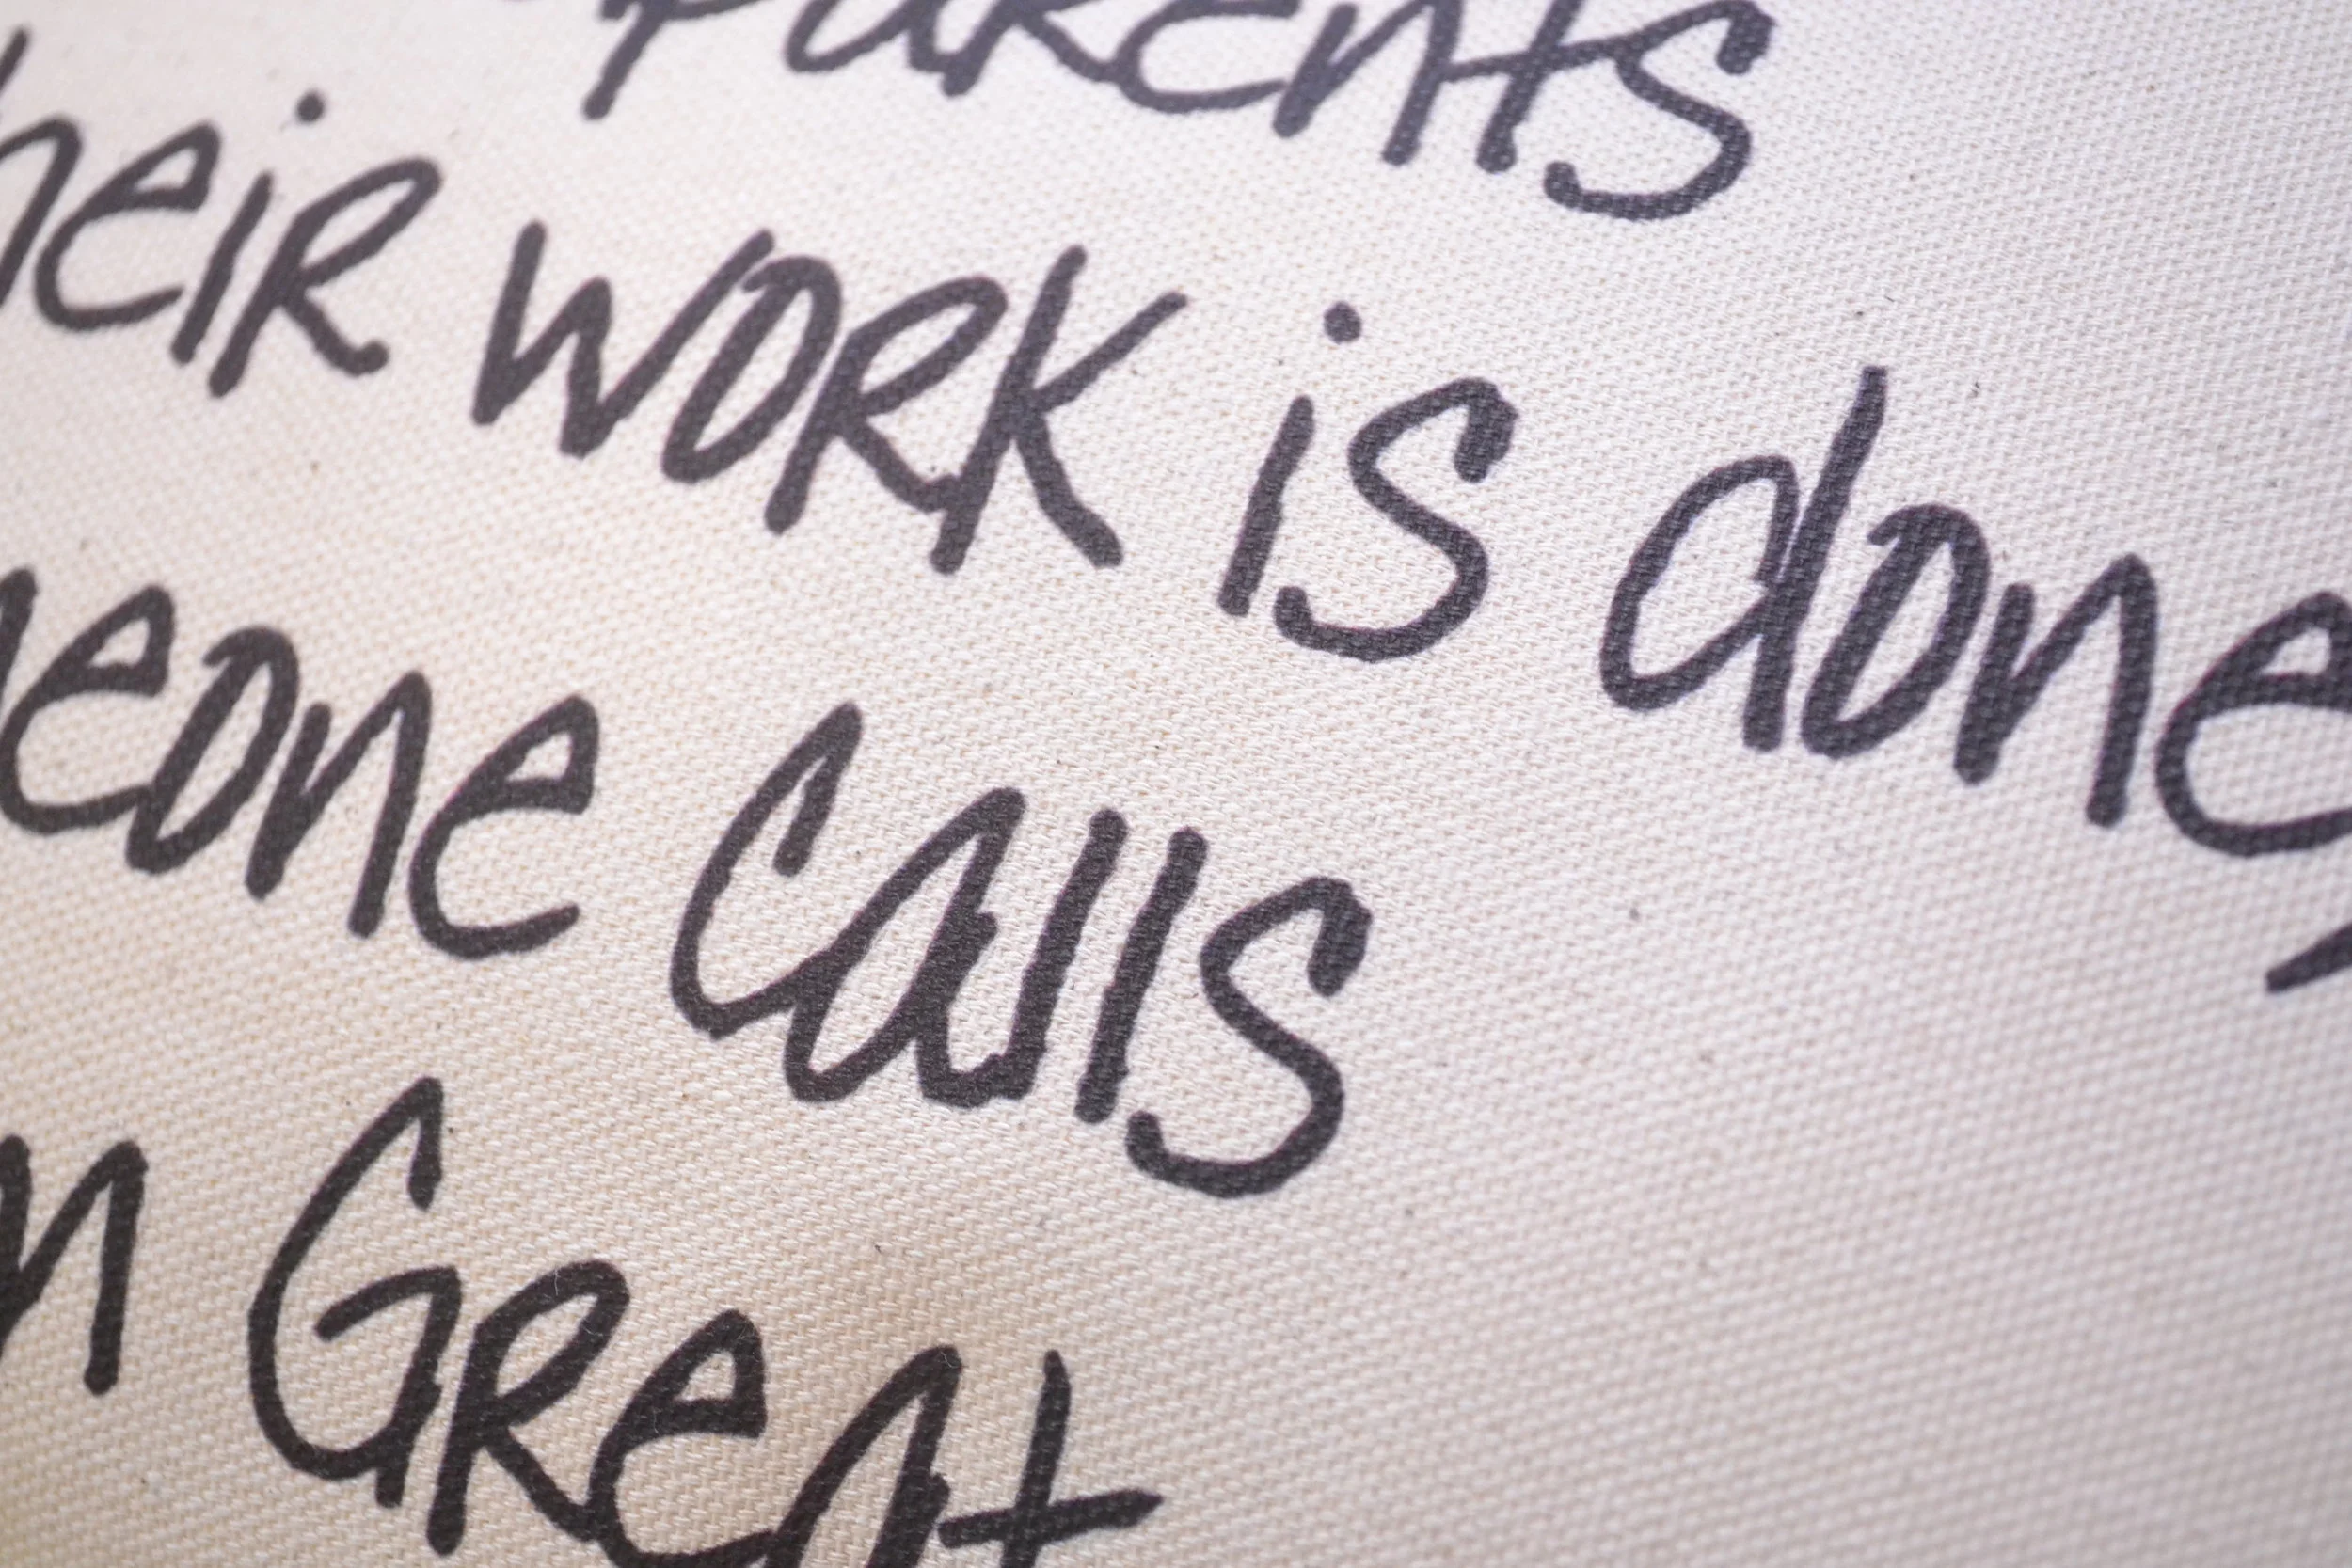 Parents
heir work is done,
eone Calls
n Great